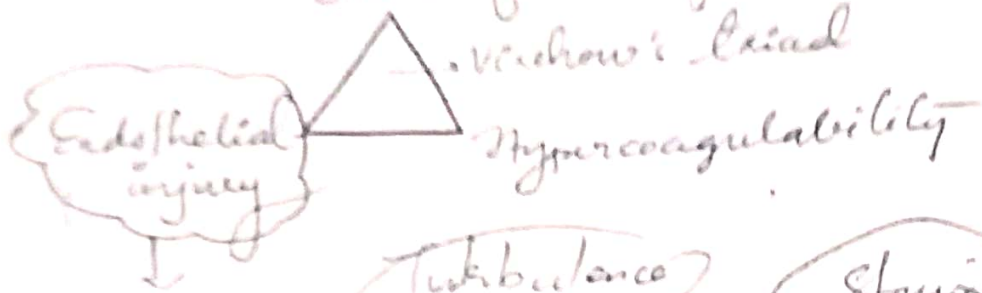 Virchow's triad
Endothelial
injury
Hypercoagulability
Turbulence